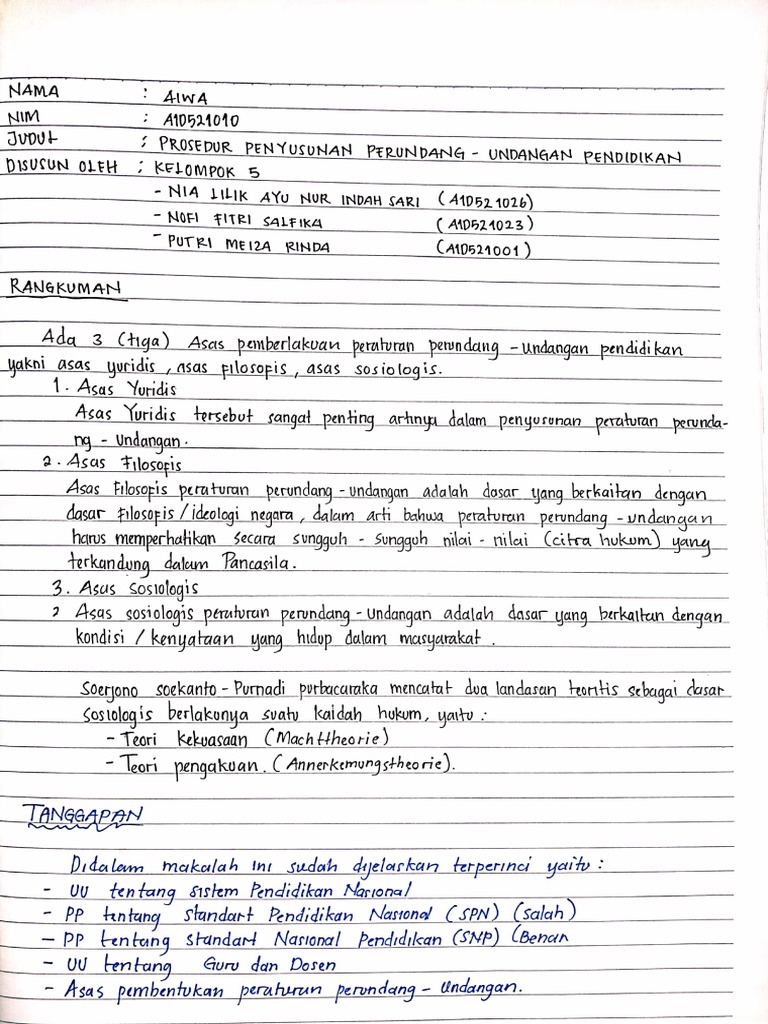 NAMA : AIWA
NIM : A1D521010
JUDUL : PROSEDUR PENYUSUNAN PERUNDANG - UNDANGAN PENDIDIKAN
DISUSUN OLEH : KELOMPOK 5
- NIA LILIK AYU NUR INDAH SARI (A1D521026)
- NOFI FITRI SALFIKA (A1D521023)
- PUTRI MEIZA RINDA (A1D521001)
RANGKUMAN
Ada 3 (tiga) Asas pemberlakuan peraturan perundang - undangan pendidikan
yakni asas yuridis, asas filosofis, asas sosiologis.
1. Asas Yuridis
Asas Yuridis tersebut sangat penting artinya dalam penyusunan peraturan perunda-
ng - Undangan.
2. Asas Filosofis
Asas Filosofis peraturan perundang - undangan adalah dasar yang berkaitan dengan
dasar filosofis / ideologi negara, dalam arti bahwa peraturan perundang - undangan
harus memperhatikan secara sungguh - sungguh nilai - nilai (citra hukum) yang
terkandung dalam Pancasila.
3. Asas Sosiologis
2 Asas sosiologis peraturan perundang - Undangan adalah dasar yang berkaitan dengan
kondisi / kenyataan yang hidup dalam masyarakat.
Soerjono soekanto - Purnadi purbacaraka mencatat dua landasan teoritis sebagai dasar
sosiologis berlakunya suatu kaidah hukum, yaitu :
- Teori kekuasaan (Machttheorie)
- Teori pengakuan. (Annerkemungstheorie).
TANGGAPAN
Didalam makalah ini sudah dijelaskan terperinci yaitu :
- UU tentang sistem Pendidikan Nasional
- PP tntang standart Pendidikan Nasional (SPN) (salah)
- PP tentang standart Nasional Pendidikan (SNP) (Benar
- UU tentang Guru dan Dosen
- Asas pembentukan peraturan perundang - Undangan.